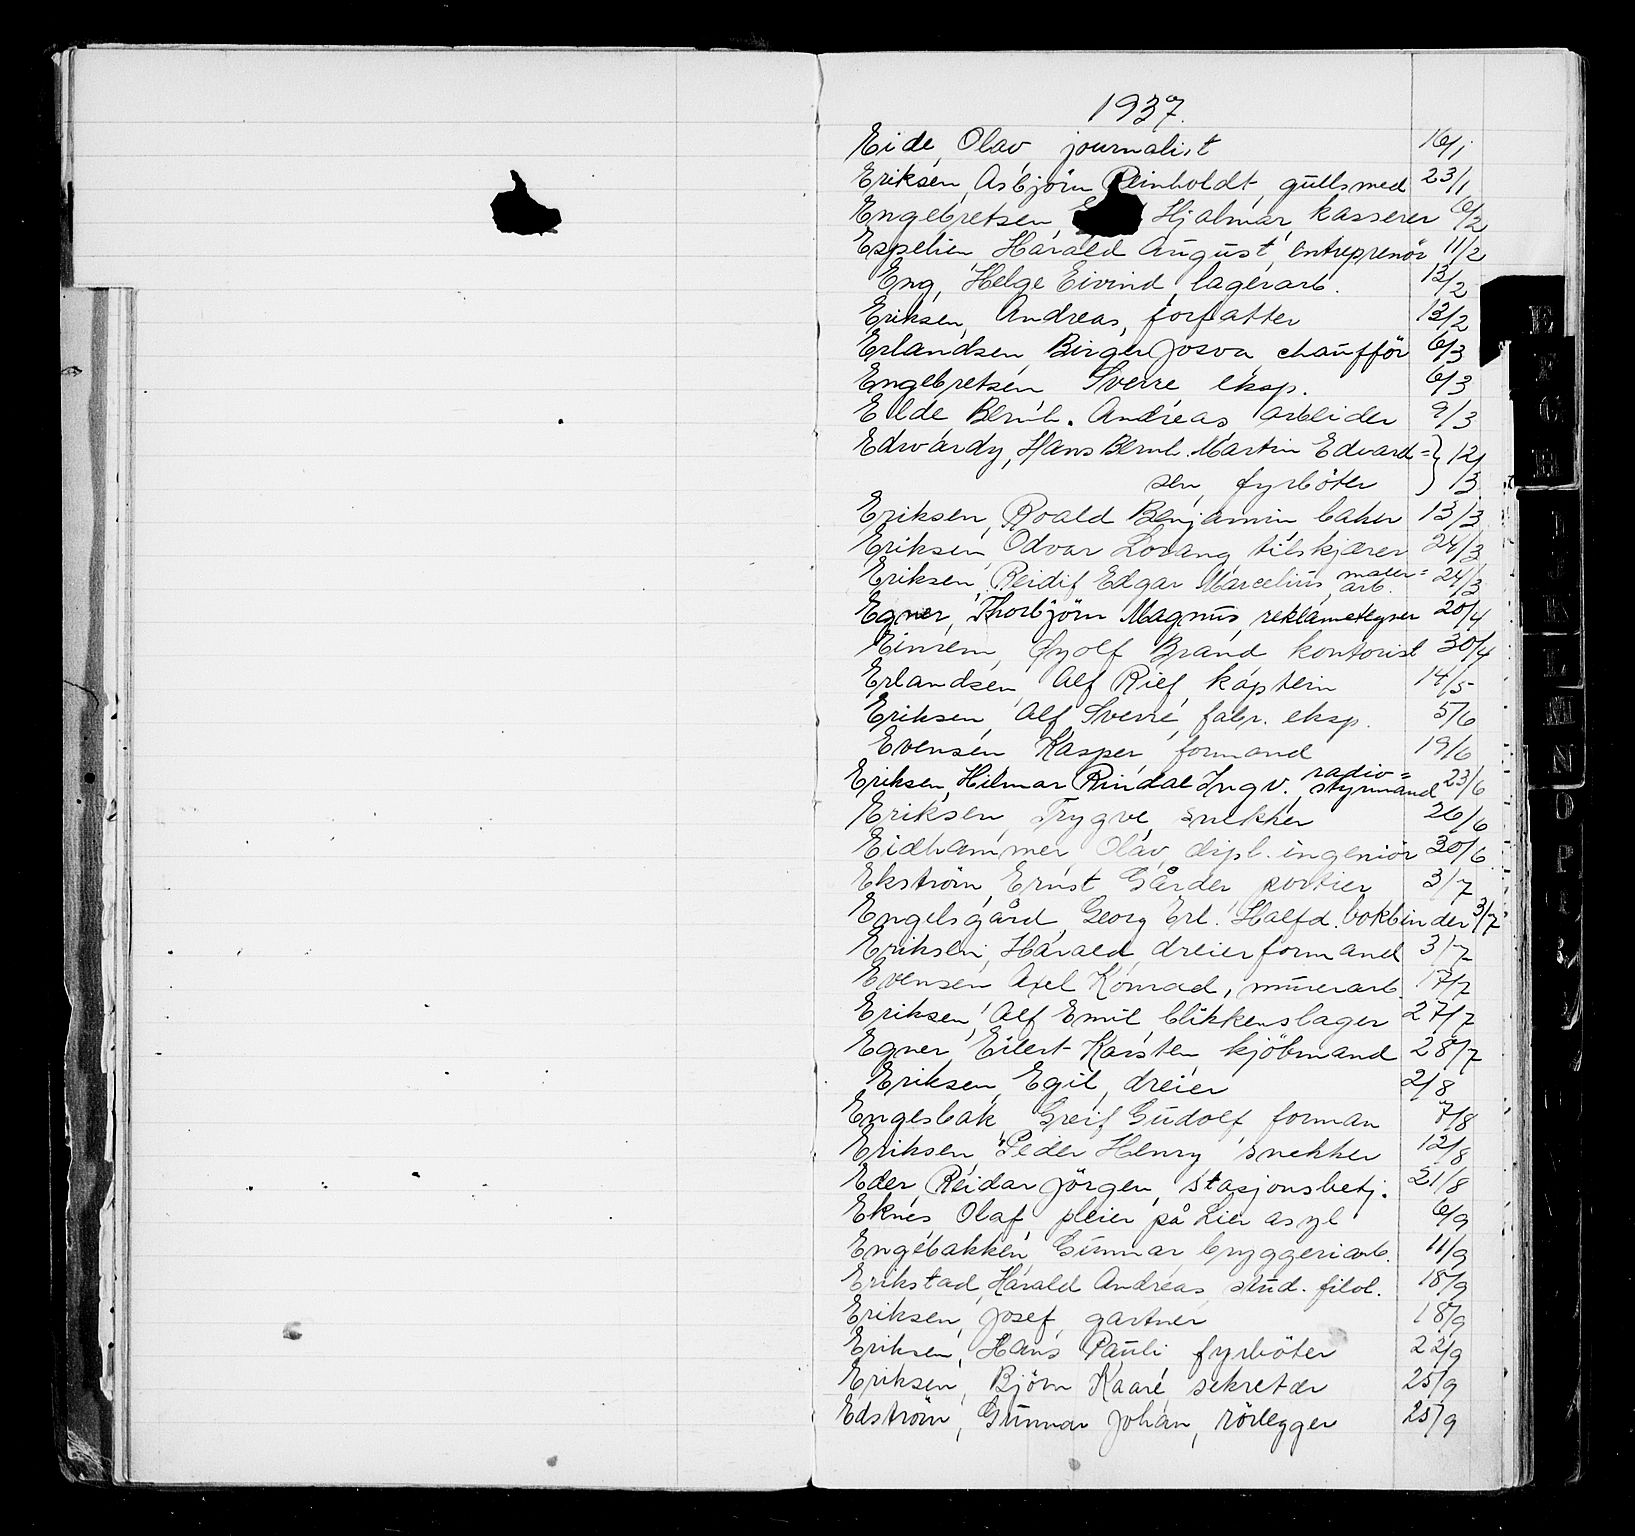 1937.
Eide, Olav journalist 16/1
Eriksen, Asbjörn Reinholdt, gullsmed 23/1
Engebretsen, Hjalmar, kasserer 6/2
Espelien, Harald August, entreprenör 11/2
Eng, Helge Eivind, lagerarb. 13/2
Eriksen, Andreas, forfatter 13/2
Erlandsen, Birger Josva, chaufför 6/3
Engebretsen Sverre eksp. 6/3
Elde Bernh. Andreas, arbeider 9/3
Edwardy, Hans Bernh. Martin Edvard= } 12/
sen, fyrböter } 13
Eriksen, Roald Benjamin baker 13/3
Eriksen, Odvar Lovang, tilskjærer 24/3
Eriksen, Reidif Edgar Marcelius, maler= arb. 24/3
Egner, Thorbjörn Magnus, reklametegner 20/4
Einrem, Gyolf Brand kontorist 30/4
Erlandsen, Alf Rief, kaptein 14/5
Eriksen, Alf Sverre, fabr. eksp. 5/6
Evensen Kasper, formand 19/6
Eriksen, Hilmar Rindal Ingv., radio= styrmand 23/6
Eriksen, Trygve, snekker 26/6
Eidhammer, Olav, dipl. ingeniör 30/6
Ekström, Ernst Gårder portier 3/7
Engelsgård, Georg Erl. Halfd. bokbinder 3/7
Eriksen, Harald, dreierformand 3/7
Evensen Axel Konrad, murerarb. 17/7
Eriksen, Alf Emil, blikkenslager 27/7
Egner, Eilert Karsten, kjöbmand 28/7
Eriksen, Egil, dreier 2/8
Engesbak, Greif Gudolf forman 7/8
Eriksen, Peder Henry snekker 12/8
Eder, Reidar Jörgen, stasjonsbetj. 21/8
Eknes Olaf, pleier på Lier asyl 6/9
Engebakken, Gunnar, bryggeriarb. 11/9
Erikstad, Harald Andreas, stud. filol. 18/9
Eriksen, Josef, gartner 18/9
Eriksen, Hans Pauli fyrböter 22/9
Eriksen, Björn Kaare sekretær 25/9
Edström, Gunnar Johan, rörlegger 25/9
E
F
G
H
I
J
K
L
M
N
O
P